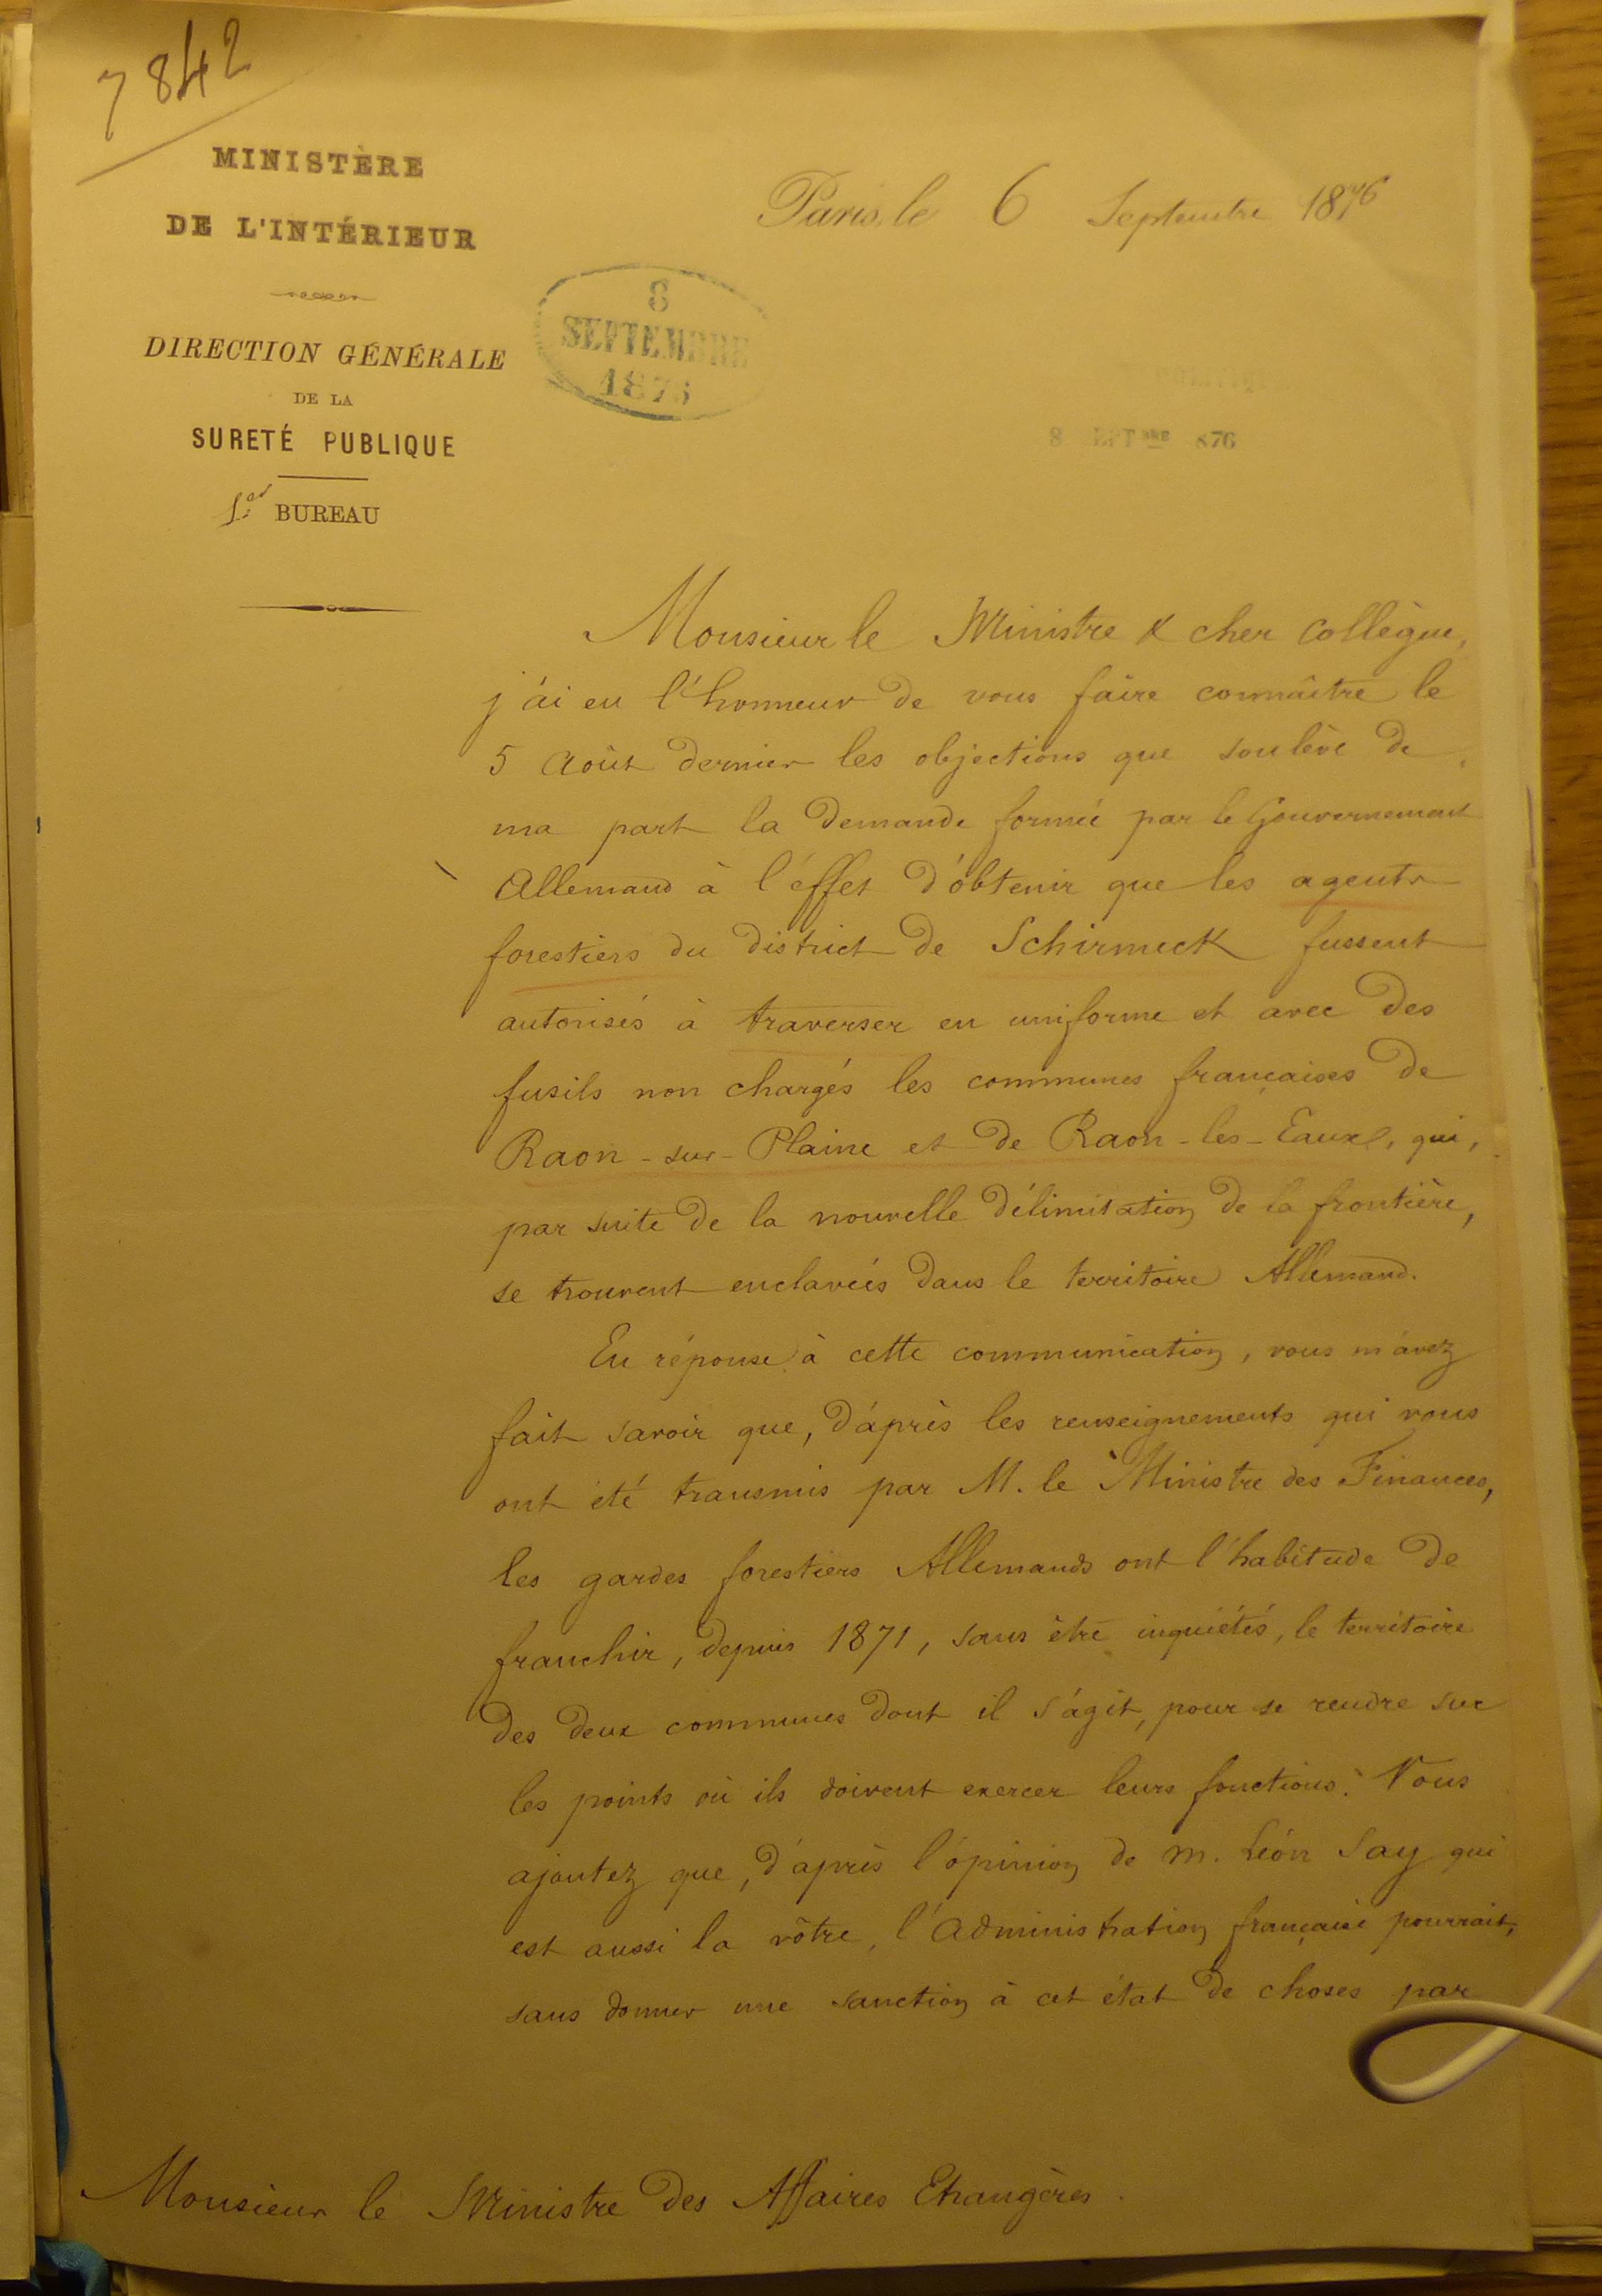 7842
MINISTÈRE
DE L'INTÉRIEUR
DIRECTION GÉNÉRALE
DE LA
SURETÉ PUBLIQUE
1er BUREAU
Paris, le 6 Septembre 1876
8
SEPTEMBRE
1876
8 876
Monsieur le Ministre & cher Collègue,
j'ai eu l'honneur de vous faire connaître le
5 Août dernier les objections que soulève de
ma part la demande formée par le Gouvernement
Allemand à l'éffet d'obtenir que les agents
forestiers du district de Schirmeck fussent
autorisés à traverser en uniforme et avec des
fusils non chargés les communes françaises de
Raon-sur-Plaine et de Raon-les-Eaux, qui,
par suite de la nouvelle délimitation de la frontière,
se trouvent enclavées dans le territoire Allemand.
En réponse à cette communication, vous m'avez
fait savoir que, d'après les renseignements qui vous
ont été transmis par M. le Ministre des Finances,
les gardes forestiers Allemands ont l'habitude de
franchir, depuis 1871, sans être inquiétés, le territoire
des deux communes dont il s'agit, pour se rendre sur
les points où ils doivent exercer leurs fonctions. Vous
ajoutez que, d'après l'opinion de M. Léon Say qui
est aussi la vôtre, l'administration française pourrait,
sans donner une sanction à cet état de choses par
Monsieur le Ministre des Affaires Etrangères.